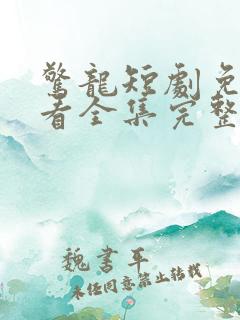 驚龍短劇免
看全集完整
魏書平
未经同意禁止转载